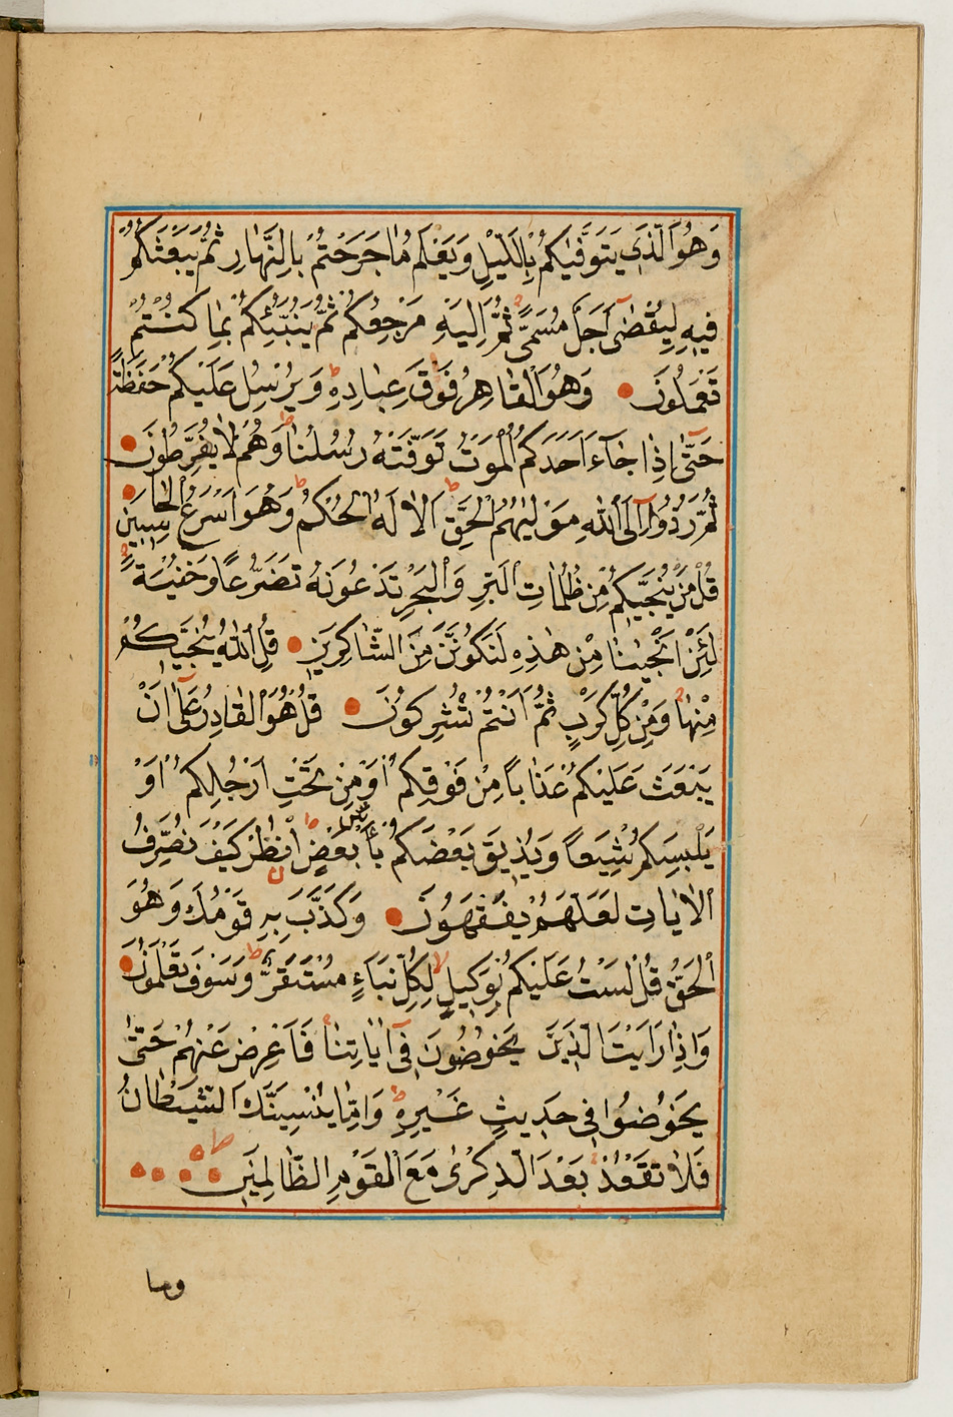 وَهُوَ الَّذِي يَتَوَفّٰيكُمْ بِاللَّيْلِ وَيَعْلَمُ مَا جَرَحْتُمْ بِالنَّهَارِ ثُمَّ يَبْعَثُكُمْ
فِيهِ لِيُقْضٰى اَجَلٌ مُسَمًّى ثُمَّ اِلَيْهِ مَرْجِعُكُمْ ثُمَّ يُنَبِّئُكُمْ بِمَا كُنْتُمْ
تَعْمَلُونَ وَهُوَ الْقَاهِرُ فَوْقَ عِبَادِهِ وَيُرْسِلُ عَلَيْكُمْ حَفَظَةً
حَتّٰى اِذَا جَآءَ اَحَدَكُمُ الْمَوْتُ تَوَفَّتْهُ رُسُلُنَا وَهُمْ لَا يُفَرِّطُونَ
ثُمَّ رُدُّوا اِلَى اللّٰهِ مَوْلٰيهُمُ الْحَقِّ اَلَا لَهُ الْحُكْمُ وَهُوَ اَسْرَعُ الْحَاسِبِينَ
قُلْ مَنْ يُنَجِّيكُمْ مِنْ ظُلُمَاتِ الْبَرِّ وَالْبَحْرِ تَدْعُونَهُ تَضَرُّعًا وَخُفْيَةً
لَئِنْ اَنْجَيْتَنَا مِنْ هٰذِهِ لَنَكُونَنَّ مِنَ الشَّاكِرِينَ قُلِ اللّٰهُ يُنَجِّيكُمْ
مِنْهَا وَمِنْ كُلِّ كَرْبٍ ثُمَّ اَنْتُمْ تُشْرِكُونَ قُلْ هُوَ الْقَادِرُ عَلٰى اَنْ
يَبْعَثَ عَلَيْكُمْ عَذَابًا مِنْ فَوْقِكُمْ اَوْ مِنْ تَحْتِ اَرْجُلِكُمْ اَوْ
يَلْبِسَكُمْ شِيَعًا وَيُذِيقَ بَعْضَكُمْ بَأْسَ بَعْضٍ اُنْظُرْ كَيْفَ نُصَرِّفُ
الْاٰيَاتِ لَعَلَّهُمْ يَفْقَهُونَ وَكَذَّبَ بِهِ قَوْمُكَ وَهُوَ
الْحَقُّ قُلْ لَسْتُ عَلَيْكُمْ بِوَكِيلٍ لِكُلِّ نَبَاءٍ مُسْتَقَرٌّ وَسَوْفَ تَعْلَمُونَ
وَاِذَا رَاَيْتَ الَّذِينَ يَخُوضُونَ فِي اٰيَاتِنَا فَاَعْرِضْ عَنْهُمْ حَتّٰى
يَخُوضُوا فِي حَدِيثٍ غَيْرِهِ وَاِمَّا يُنْسِيَنَّكَ الشَّيْطَانُ
فَلَا تَقْعُدْ بَعْدَ الذِّكْرٰى مَعَ الْقَوْمِ الظَّالِمِينَ
وما